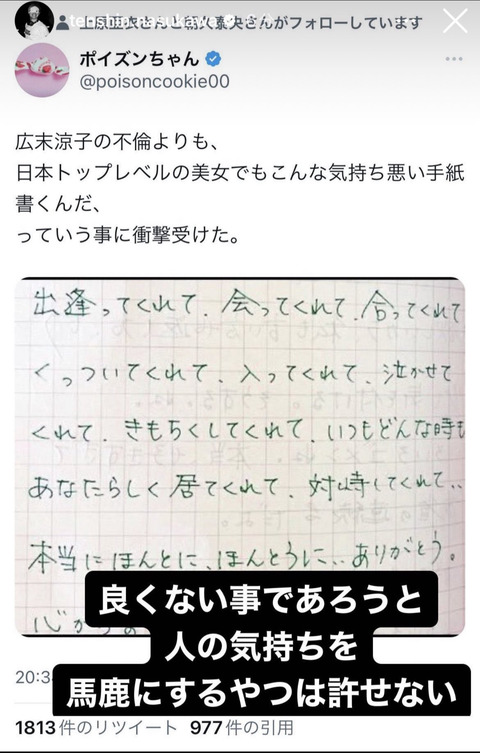 tenshin_nasukawa
さんがフォローしています
ポイズンちゃん
@poisoncookie00
広末涼子の不倫よりも、
日本トップレベルの美女でもこんな気持ち悪い手紙
書くんだ、
っていう事に衝撃受けた。
出逢ってくれて、会ってくれて、合ってくれて
くっついてくれて、入ってくれて、泣かせて
くれて、きもちくしてくれて、いつもどんな時も
あなたらしく居てくれて、対峙してくれて..
本当にほんとに、ほんとうに..ありがとう。
心か
良くない事であろうと
人の気持ちを
馬鹿にするやつは許せない
20:3
1813件のリツイート 977件の引用